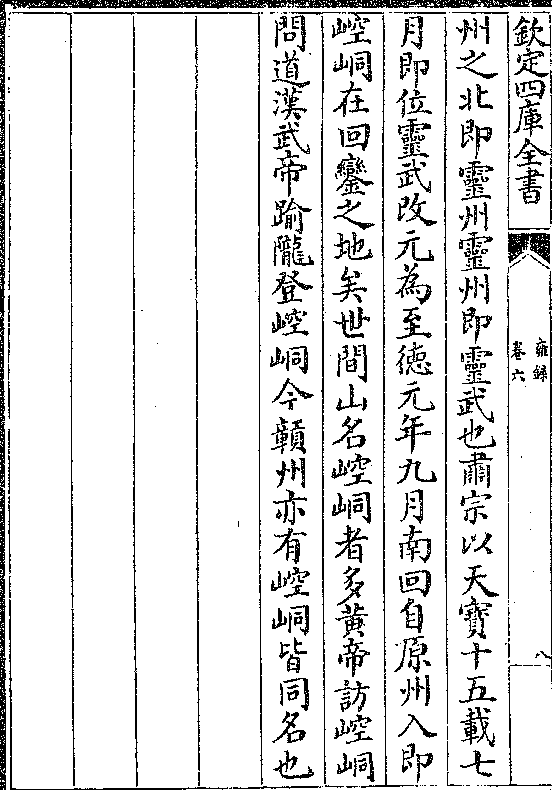 欽定四庫全書
雍錄
卷六
八
州之北即靈州靈州即靈武也肅宗以天寶十五載七
月即位靈武改元為至德元年九月南回自原州入即
崆峒在回鑾之地矣世間山名崆峒者多黃帝訪崆峒
問道漢武帝踰隴登崆峒今贛州亦有崆峒皆同名也